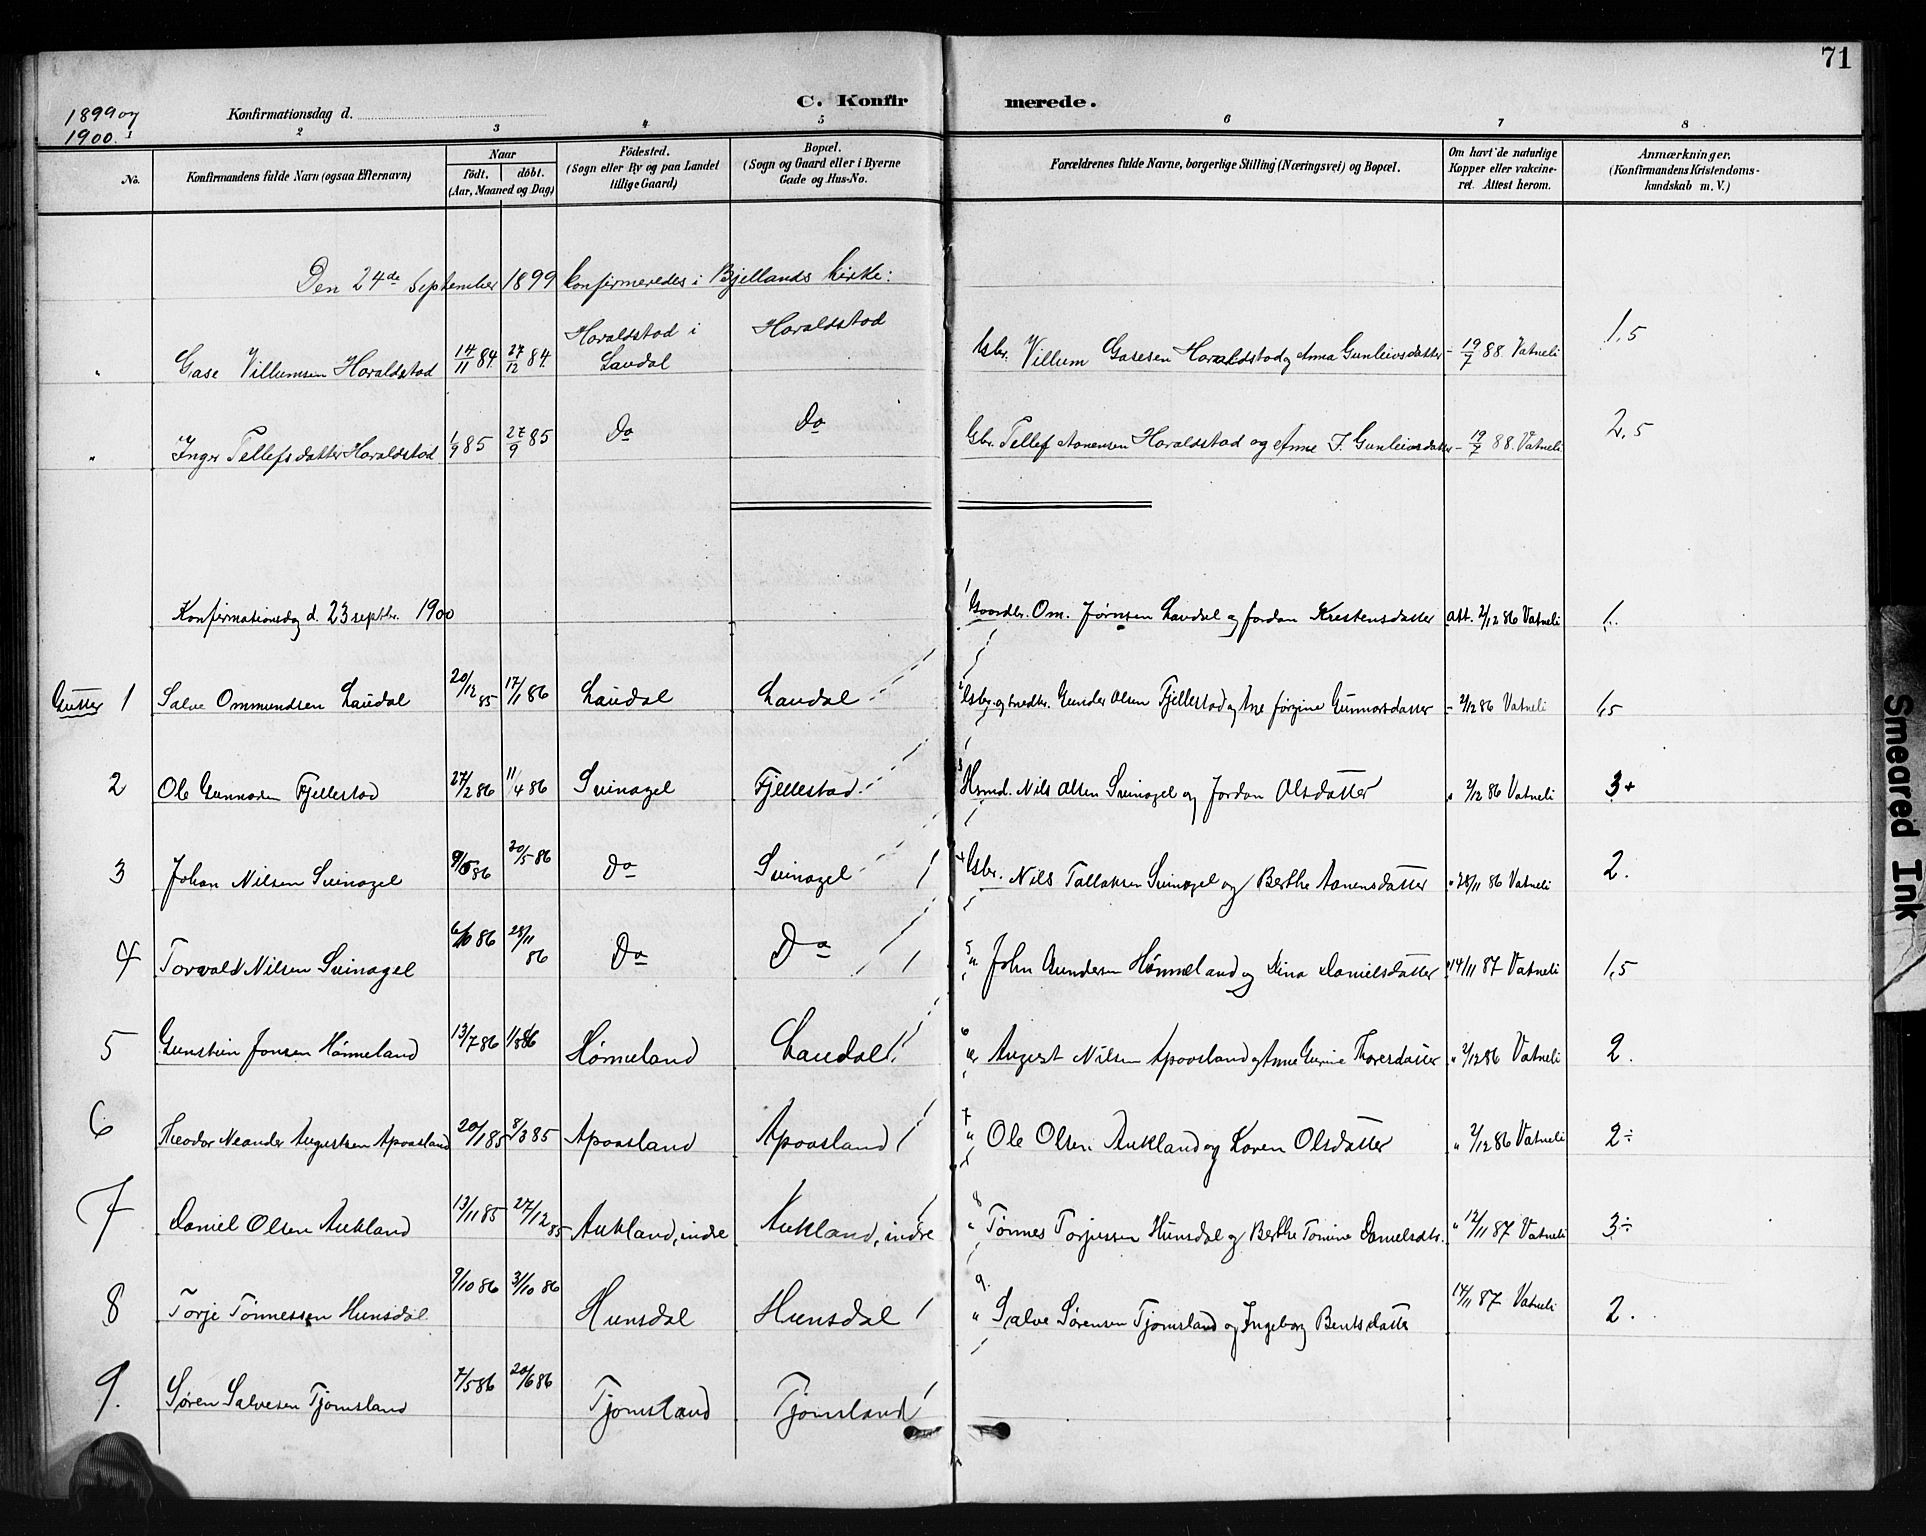 71
1899 og
1900.
Konfirmationsdag d.
C. Konfirmerede.
1 2 3 4 5 6 7 8
No.
Konfirmandens fulde Navn (ogsaa Efternavn)
Naar
födt. döbt.
(Aar, Maaned og Dag)
Födested.
(Sogn eller By og paa Landet
tillige Gaard)
Bopæl.
(Sogn og Gaard eller i Byerne
Gade og Hus-No.
Forældrenes fulde Navne, borgerlige Stilling (Næringsvei) og Bopæl.
Om havt de naturlige
Kopper eller vakcine-
ret. Attest herom.
Anmærkninger.
(Konfirmandens Kristendoms-
kundskab m. V.)
Den 24de September 1899 konfirmeredes i Bjellands kirke:
" Gase Villumsen Haraldstad 14/11 84. 27/12 84. Haraldstad i Laudal Haraldstad Gbr. Villum Gasesen Haraldstad og Anna Gunleivsdatter - 19/7 88 Vatneli 1,5
" Inger Tellefsdatter Haraldstad 1/9 85 27/9 85 Do Do Gbr. Tellef Aanensen Haraldstad og Anne T. Gunleivsdatter - 19/7 88. Vatneli 2,5
Konfirmationsdag d. 23 septbr. 1900
Gutter 1 Salve Ommundsen Laudal 20/12 85 17/1 86 Laudal Laudal
1 Gaardbr. Om. Jörnsen Laudal og Jordan Kristensdatter att. 2/12 86 Vatneli 1.
2 Ole Gunnarsen Fjellestad 27/2 86 11/4 86 Svinagel Fjellestad
2 Gbr. og snedker. Gunder Olsen Fjellestad og Ane Jørgine Gunnarsdatter - 2/12 86 Vatneli 1,5
3 Johan Nilsen Svinagel 9/5 86 20/5 86 Do Svinagel
3 Hsmd. Nils Olsen Svinagel og Jordan Olsdatter " 2/12 86 Vatneli 3+
4 Torvald Nilsen Svinagel 6/10 86 28/11 86 Do Do
4 Gbr. Nils Tallaksen Svinagel og Berthe Aanensdatter " 28/11 86 Vatneli 2.
5 Gunstein Jonsen Hönneland 13/7 86 1/8 86 Hönneland Laudal
5 " John Gundersen Hönneland og Stina Danielsdatter " 14/11 87 Vatneli 1,5
6 Theodor Neander Augustsen Apaasland 20/1 85 8/3 85 Apaasland Apaasland
6 August Nilsen Apaasland og Anne Gurine Thoresdatter " 2/12 86 Vatneli 2.
7 Daniel Olsen Aukland 13/11 85 27/12 85 Aukland, indre Aukland, indre
7 " Ole Olsen Aukland og Karen Olsdatter " 2/12 86 Vatneli 2÷
8 Torje Tönnessen Hunsdal 9/10 86 31/10 86 Hunsdal Hunsdal
8 " Tönnes Torjussen Hunsdal og Berthe Tomine Danielsdtr. " 12/11 87 Vatneli 3÷
9. Sören Salvesen Tjomsland 7/5 86 20/6 86 Tjomsland Tjomsland
9. " Salve Sörensen Tjomsland og Ingeborg Bentsdatter 14/11 87 Vatneli 2.
Smeared Ink